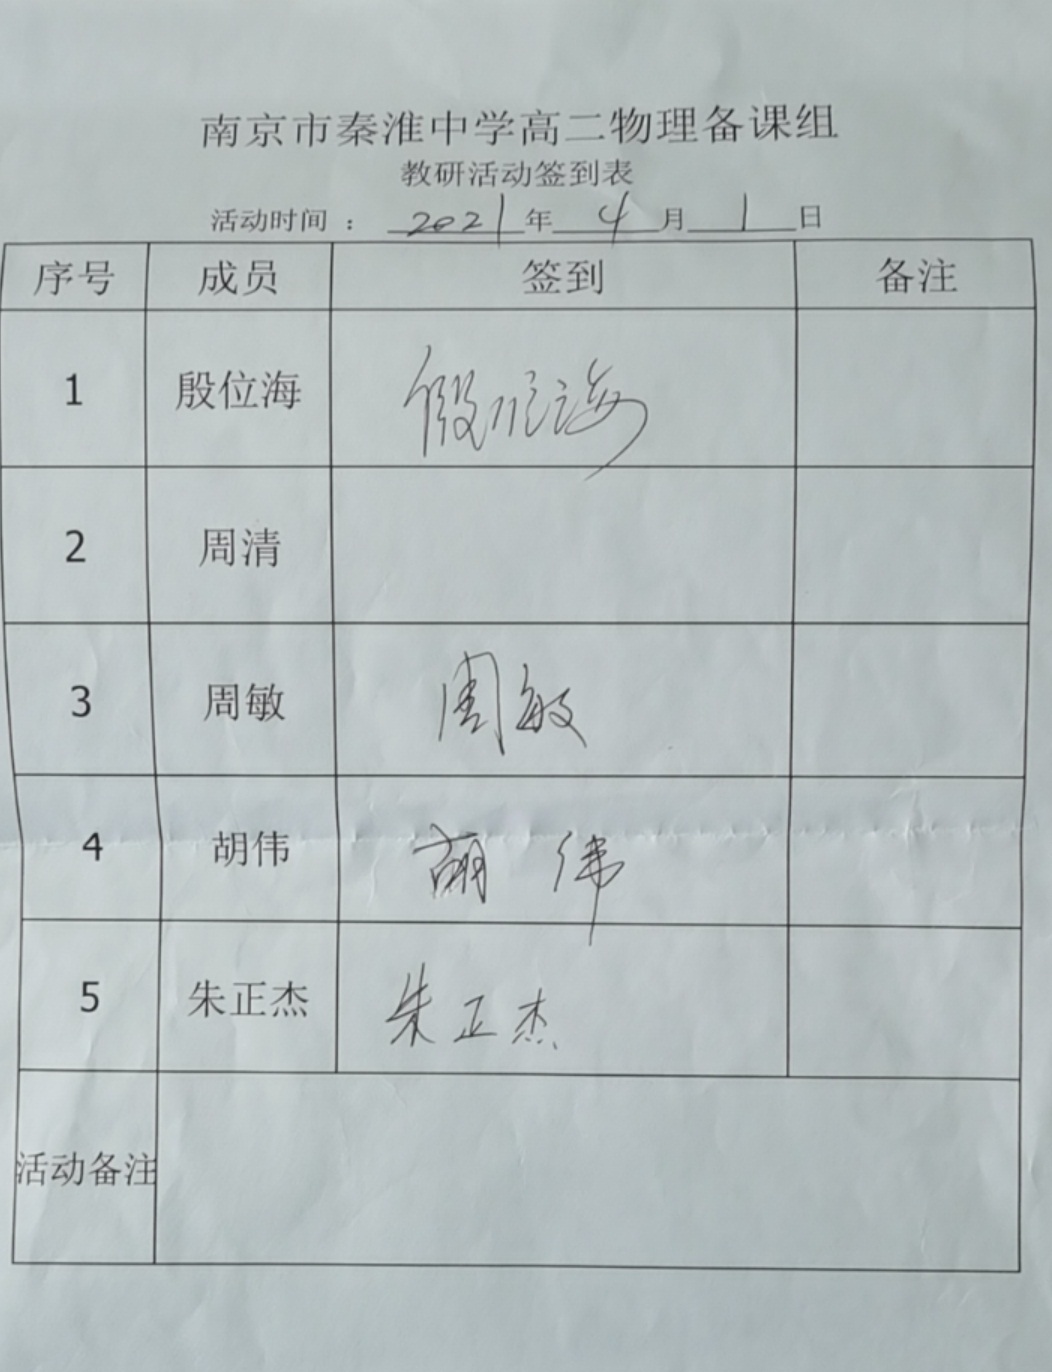 南京市秦淮中学高二物理备课组
教研活动签到表
活动时间 : 2021 年 4 月 1 日
序号 成员 签到 备注
1 殷位海 殷位海
2 周清
3 周敏 周敏
4 胡伟 胡伟
5 朱正杰 朱正杰
活动备注